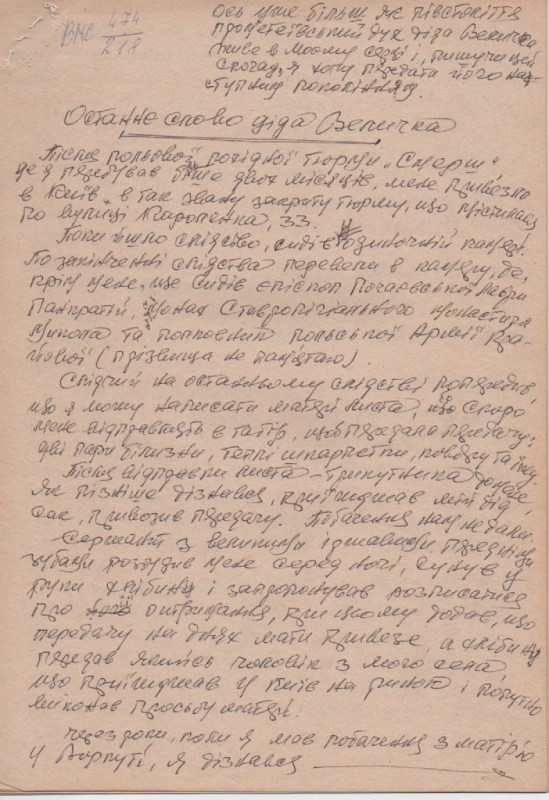 ВМС 474/218
Ось уже більш як півстоліття
пролетаївський дух діда Величка
живе в моєму серці і, пишучи цей
спогад, я хочу передати його на-
ступним поколінням.
Останнє слово діда Величка
Після польової похідної тюрми „Смерш"
де я перебував більше двох місяців, мене привезли
в Київ, в так звану закриту тюрму, що містилась
по вулиці Короленка, 33.
Поки йшло слідство, сидів в одиночній камері.
По закінченні слідства перевели в камеру, де,
крім мене, ще сидів єпископ Почаєвської лаври
Панкратій, монах Ставропігіального монастиря
Микола та полковник польської Армії Кра-
йової (прізвища не пам'ятаю).
Слідчий на останньому слідстві попередив,
що я можу написати матері листа, що скоро
мене відправлять в табір, щоб передала передачу:
дві пари білизни, теплі шкарпетки, ковдру та їжу.
Після відправки листа-трикутника додому,
як пізніше дізнався, приїжджав мій дід
Сак, привозив передачу. Побачення нам не дали.
Сержант з великими іржавими передніми
зубами розбудив мене серед ночі, сунув у
руки хлібину і запропонував розписатися
про отримання, при цьому додав, що
передачу на днях мати привезе, а хлібину
передав якийсь чоловік з мого села
що приїжджав у Київ на ринок і попутно
виконав просьбу матері.
Через роки, коли я мав побачення з матір'ю
у Воркуті, я дізнався